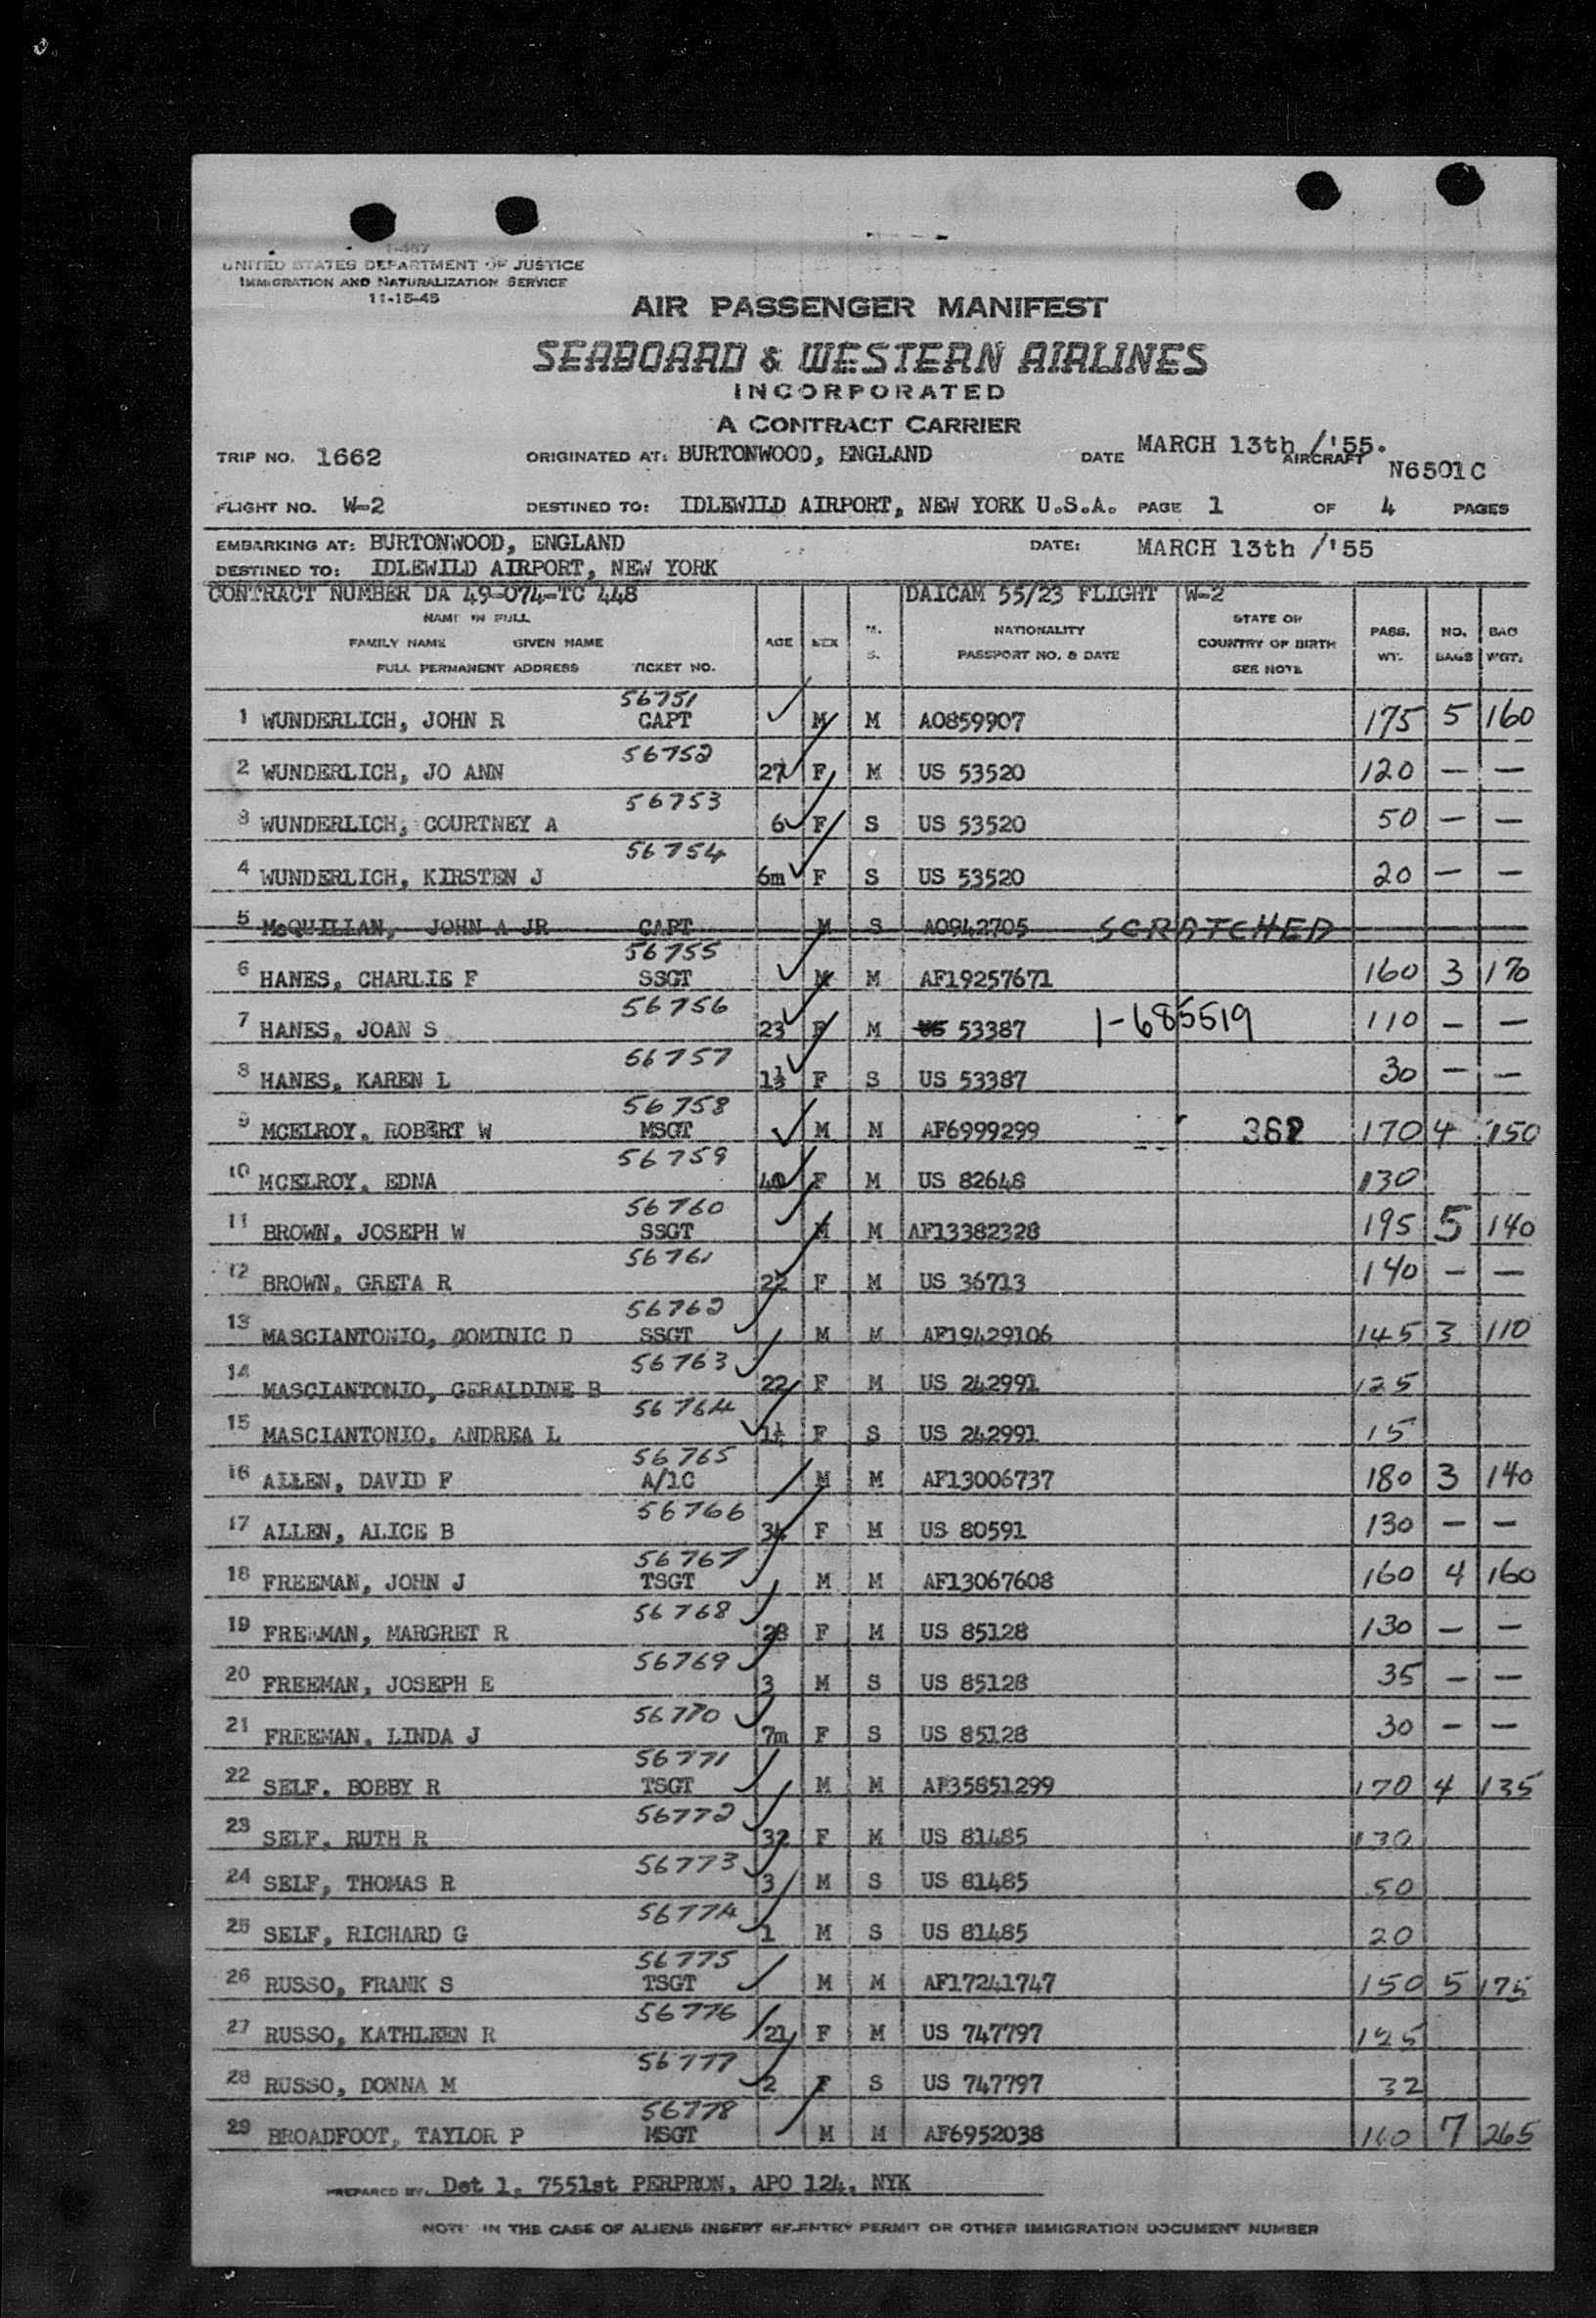 I-467
UNITED STATES DEPARTMENT OF JUSTICE
IMMIGRATION AND NATURALIZATION SERVICE
11-15-45
AIR PASSENGER MANIFEST
SEABOARD & WESTERN AIRLINES
INCORPORATED
A CONTRACT CARRIER
TRIP NO. 1662 ORIGINATED AT: BURTONWOOD, ENGLAND DATE MARCH 13th /'55. AIRCRAFT N6501C
FLIGHT NO. W-2 DESTINED TO: IDLEWILD AIRPORT, NEW YORK U.S.A. PAGE 1 OF 4 PAGES
EMBARKING AT: BURTONWOOD, ENGLAND DATE: MARCH 13th /'55
DESTINED TO: IDLEWILD AIRPORT, NEW YORK
CONTRACT NUMBER DA 49-074-TC 448 DAICAM 55/23 FLIGHT W-2
NAME IN FULL
FAMILY NAME GIVEN NAME
FULL PERMANENT ADDRESS TICKET NO. AGE SEX M. S. NATIONALITY PASSPORT NO. & DATE STATE OR COUNTRY OF BIRTH SEE NOTE PASS. WT. NO. BAGS BAG WGT.
56751
1 WUNDERLICH, JOHN R CAPT M M AO859907 175 5 160
56752
2 WUNDERLICH, JO ANN 27 F M US 53520 120 — —
56753
3 WUNDERLICH, COURTNEY A 6 F S US 53520 50 — —
56754
4 WUNDERLICH, KIRSTEN J 6m F S US 53520 20 — —
5 McQUILLAN, JOHN A JR CAPT M S AO942705 SCRATCHED
56755
6 HANES, CHARLIE F SSGT M M AF19257671 160 3 170
56756
7 HANES, JOAN S 23 F M US 53387 1-685519 110 — —
56757
8 HANES, KAREN L 1½ F S US 53387 30 — —
56758
9 MCELROY, ROBERT W MSGT M M AF6999299 170 4 150
56759
10 MCELROY, EDNA 40 F M US 82648 130
56760
11 BROWN, JOSEPH W SSGT M M AF13382328 195 5 140
56761
12 BROWN, GRETA R 22 F M US 36713 140 — —
56762
13 MASCIANTONIO, DOMINIC D SSGT M M AF19429106 145 3 110
56763
14 MASCIANTONIO, GERALDINE B 22 F M US 242991 125
56764
15 MASCIANTONIO, ANDREA L F S US 242991 15
56765
16 ALLEN, DAVID F A/1C M M AF13006737 180 3 140
56766
17 ALLEN, ALICE B 34 F M US 80591 130 — —
56767
18 FREEMAN, JOHN J TSGT M M AF13067608 160 4 160
56768
19 FREEMAN, MARGRET R 28 F M US 85128 130 — —
56769
20 FREEMAN, JOSEPH E 3 M S US 85128 35 — —
56770
21 FREEMAN, LINDA J 7m F S US 85128 30 — —
56771
22 SELF, BOBBY R TSGT M M AF35851299 170 4 135
56772
23 SELF, RUTH R 32 F M US 81485 130
56773
24 SELF, THOMAS R 3 M S US 81485 50
56774
25 SELF, RICHARD G 1 M S US 81485 20
56775
26 RUSSO, FRANK S TSGT M M AF17241747 150 5 175
56776
27 RUSSO, KATHLEEN R 21 F M US 747797 125
56777
28 RUSSO, DONNA M 2 F S US 747797 32
56778
29 BROADFOOT, TAYLOR P MSGT M M AF6952038 160 7 265
PREPARED BY. Det 1, 7551st PERPRON, APO 124, NYK
NOTE IN THE CASE OF ALIENS INSERT RE-ENTRY PERMIT OR OTHER IMMIGRATION DOCUMENT NUMBER